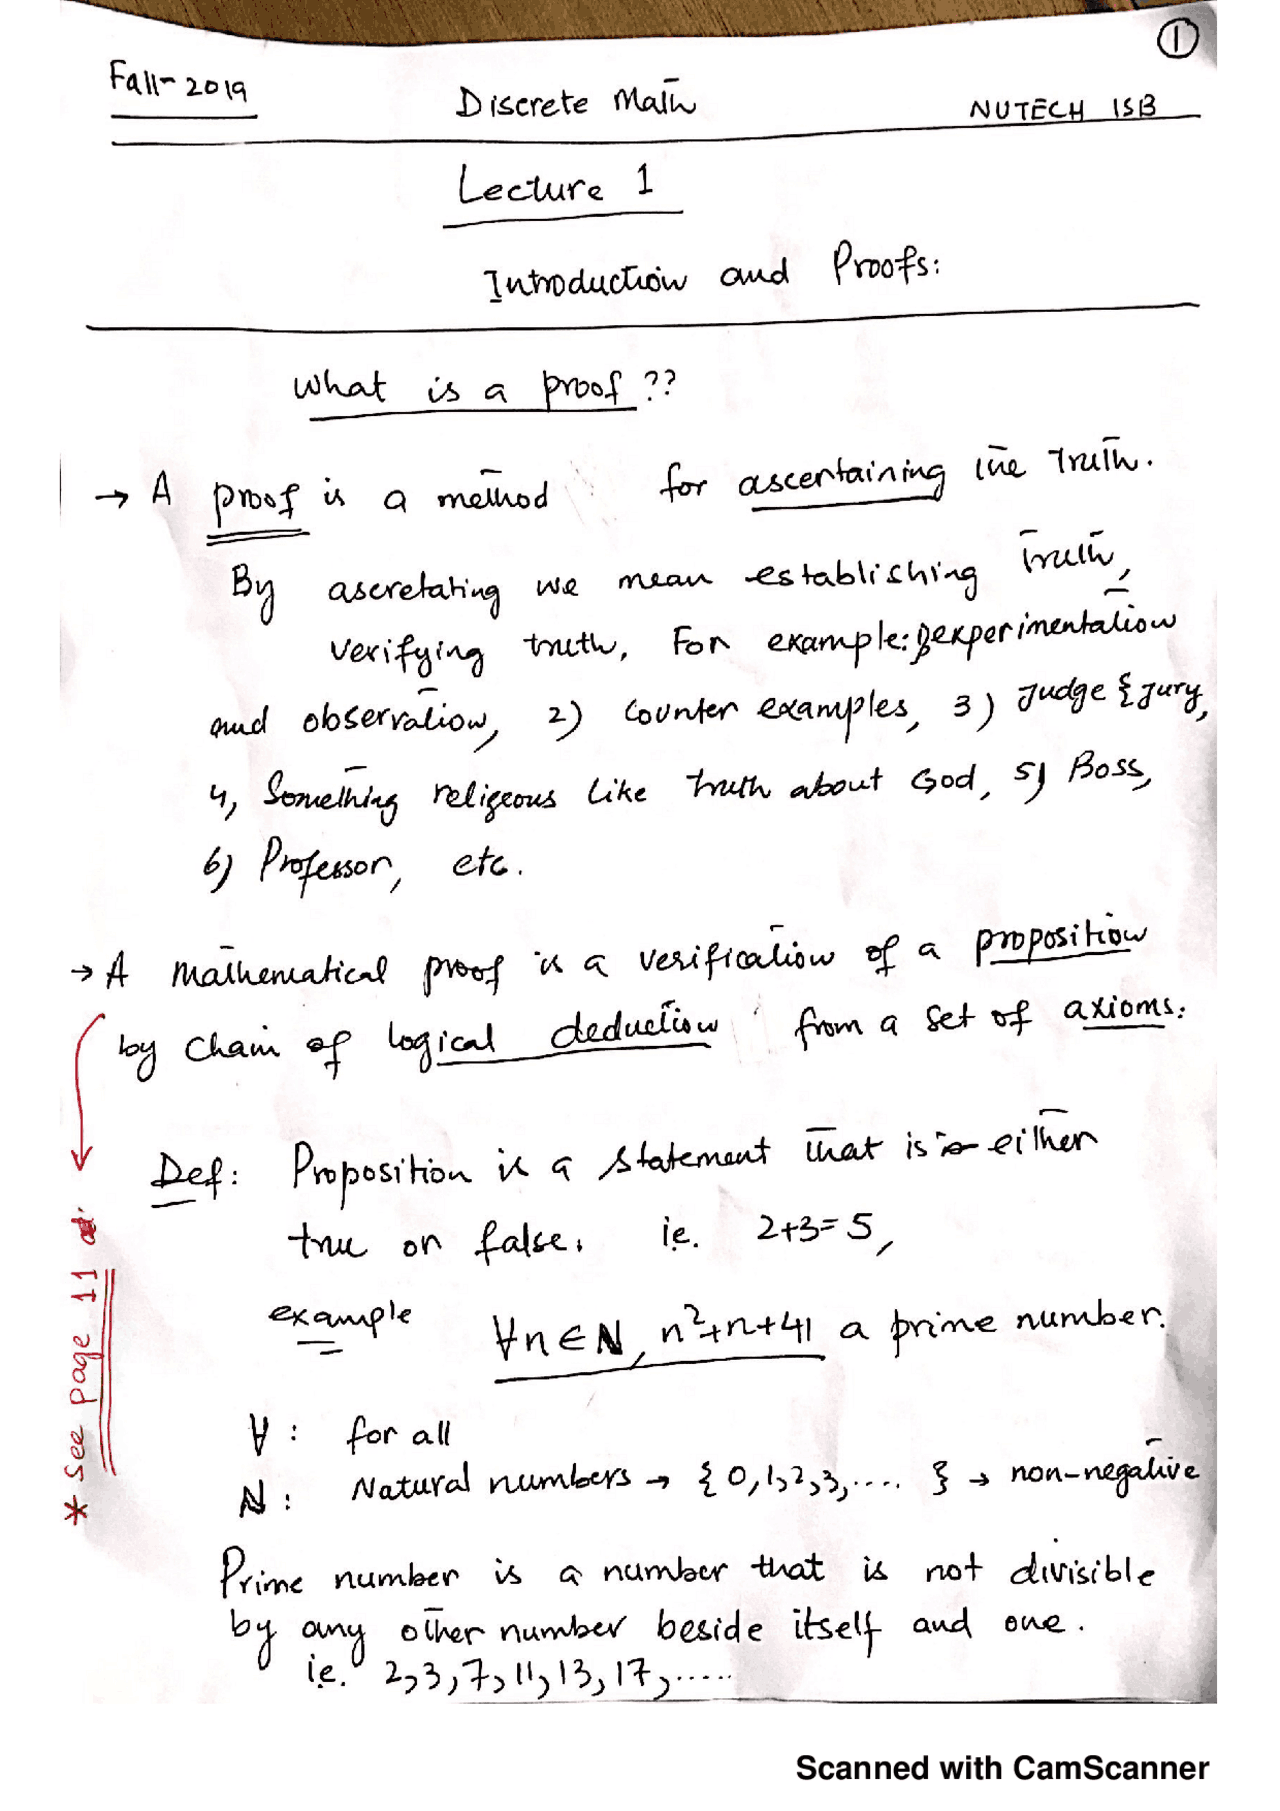 ①
Fall-2019 Discrete Math NUTECH ISB
Lecture 1
Introduction and Proofs:
What is a proof??
→ A proof is a method for ascertaining the truth.
By ascretating we mean establishing truth,
verifying truth, For example: experimentation
and observation, 2) Counter examples, 3) Judge & Jury,
4, Something religeous like truth about God, 5) Boss,
6) Professor, etc.
→ A mathematical proof is a verification of a proposition
by chain of logical deduction from a set of axioms.
Def: Proposition is a statement that is either
true or false. i.e. 2+3=5,
example ∀n∈ℕ, n²+n+41 a prime number.
∀: for all
ℕ: Natural numbers → {0,1,2,3,.... } → non-negative
Prime number is a number that is not divisible
by any other number beside itself and one.
i.e. 2,3,7,11,13,17,.....
* See page 11
Scanned with CamScanner